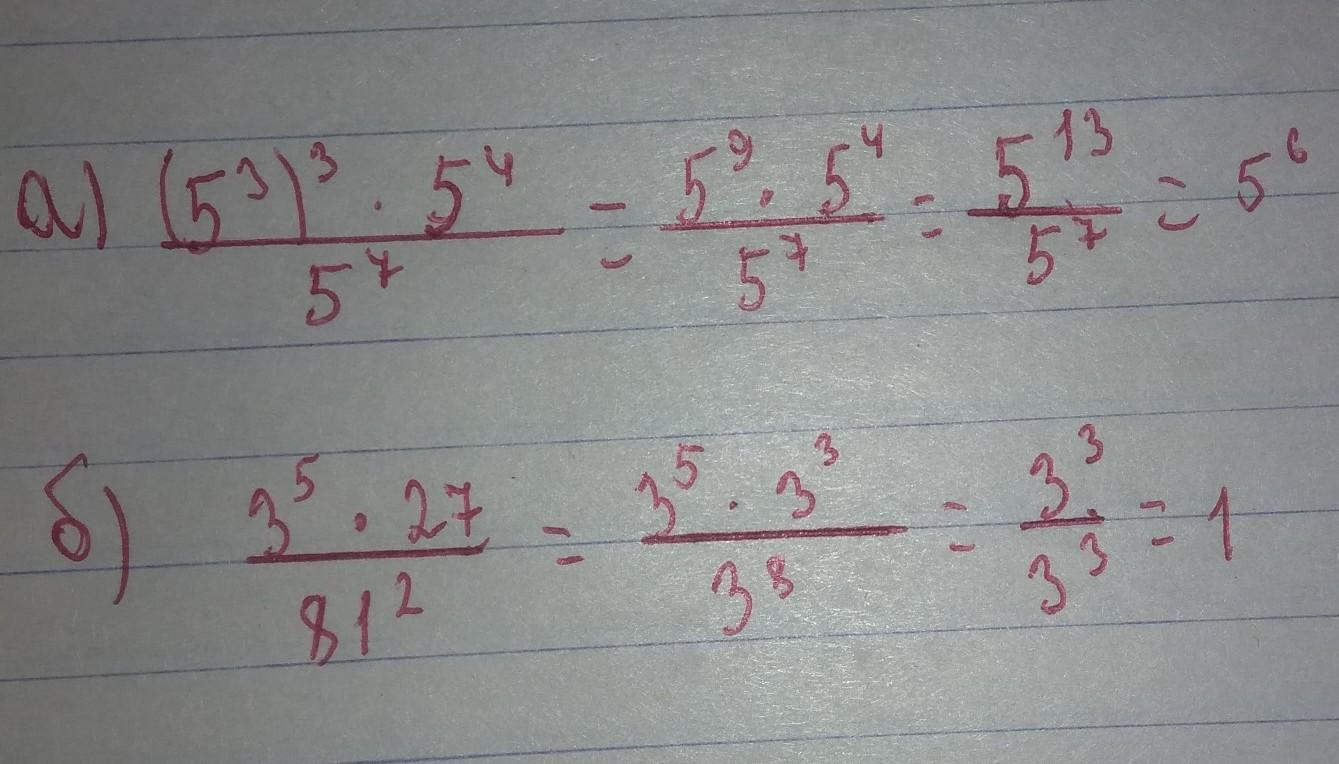 а) (5³)³ · 5⁴ / 5⁷ = 5⁹ · 5⁴ / 5⁷ = 5¹³ / 5⁷ = 5⁶
б) 3⁵ · 27 / 81² = 3⁵ · 3³ / 3⁸ = 3³ / 3³ = 1